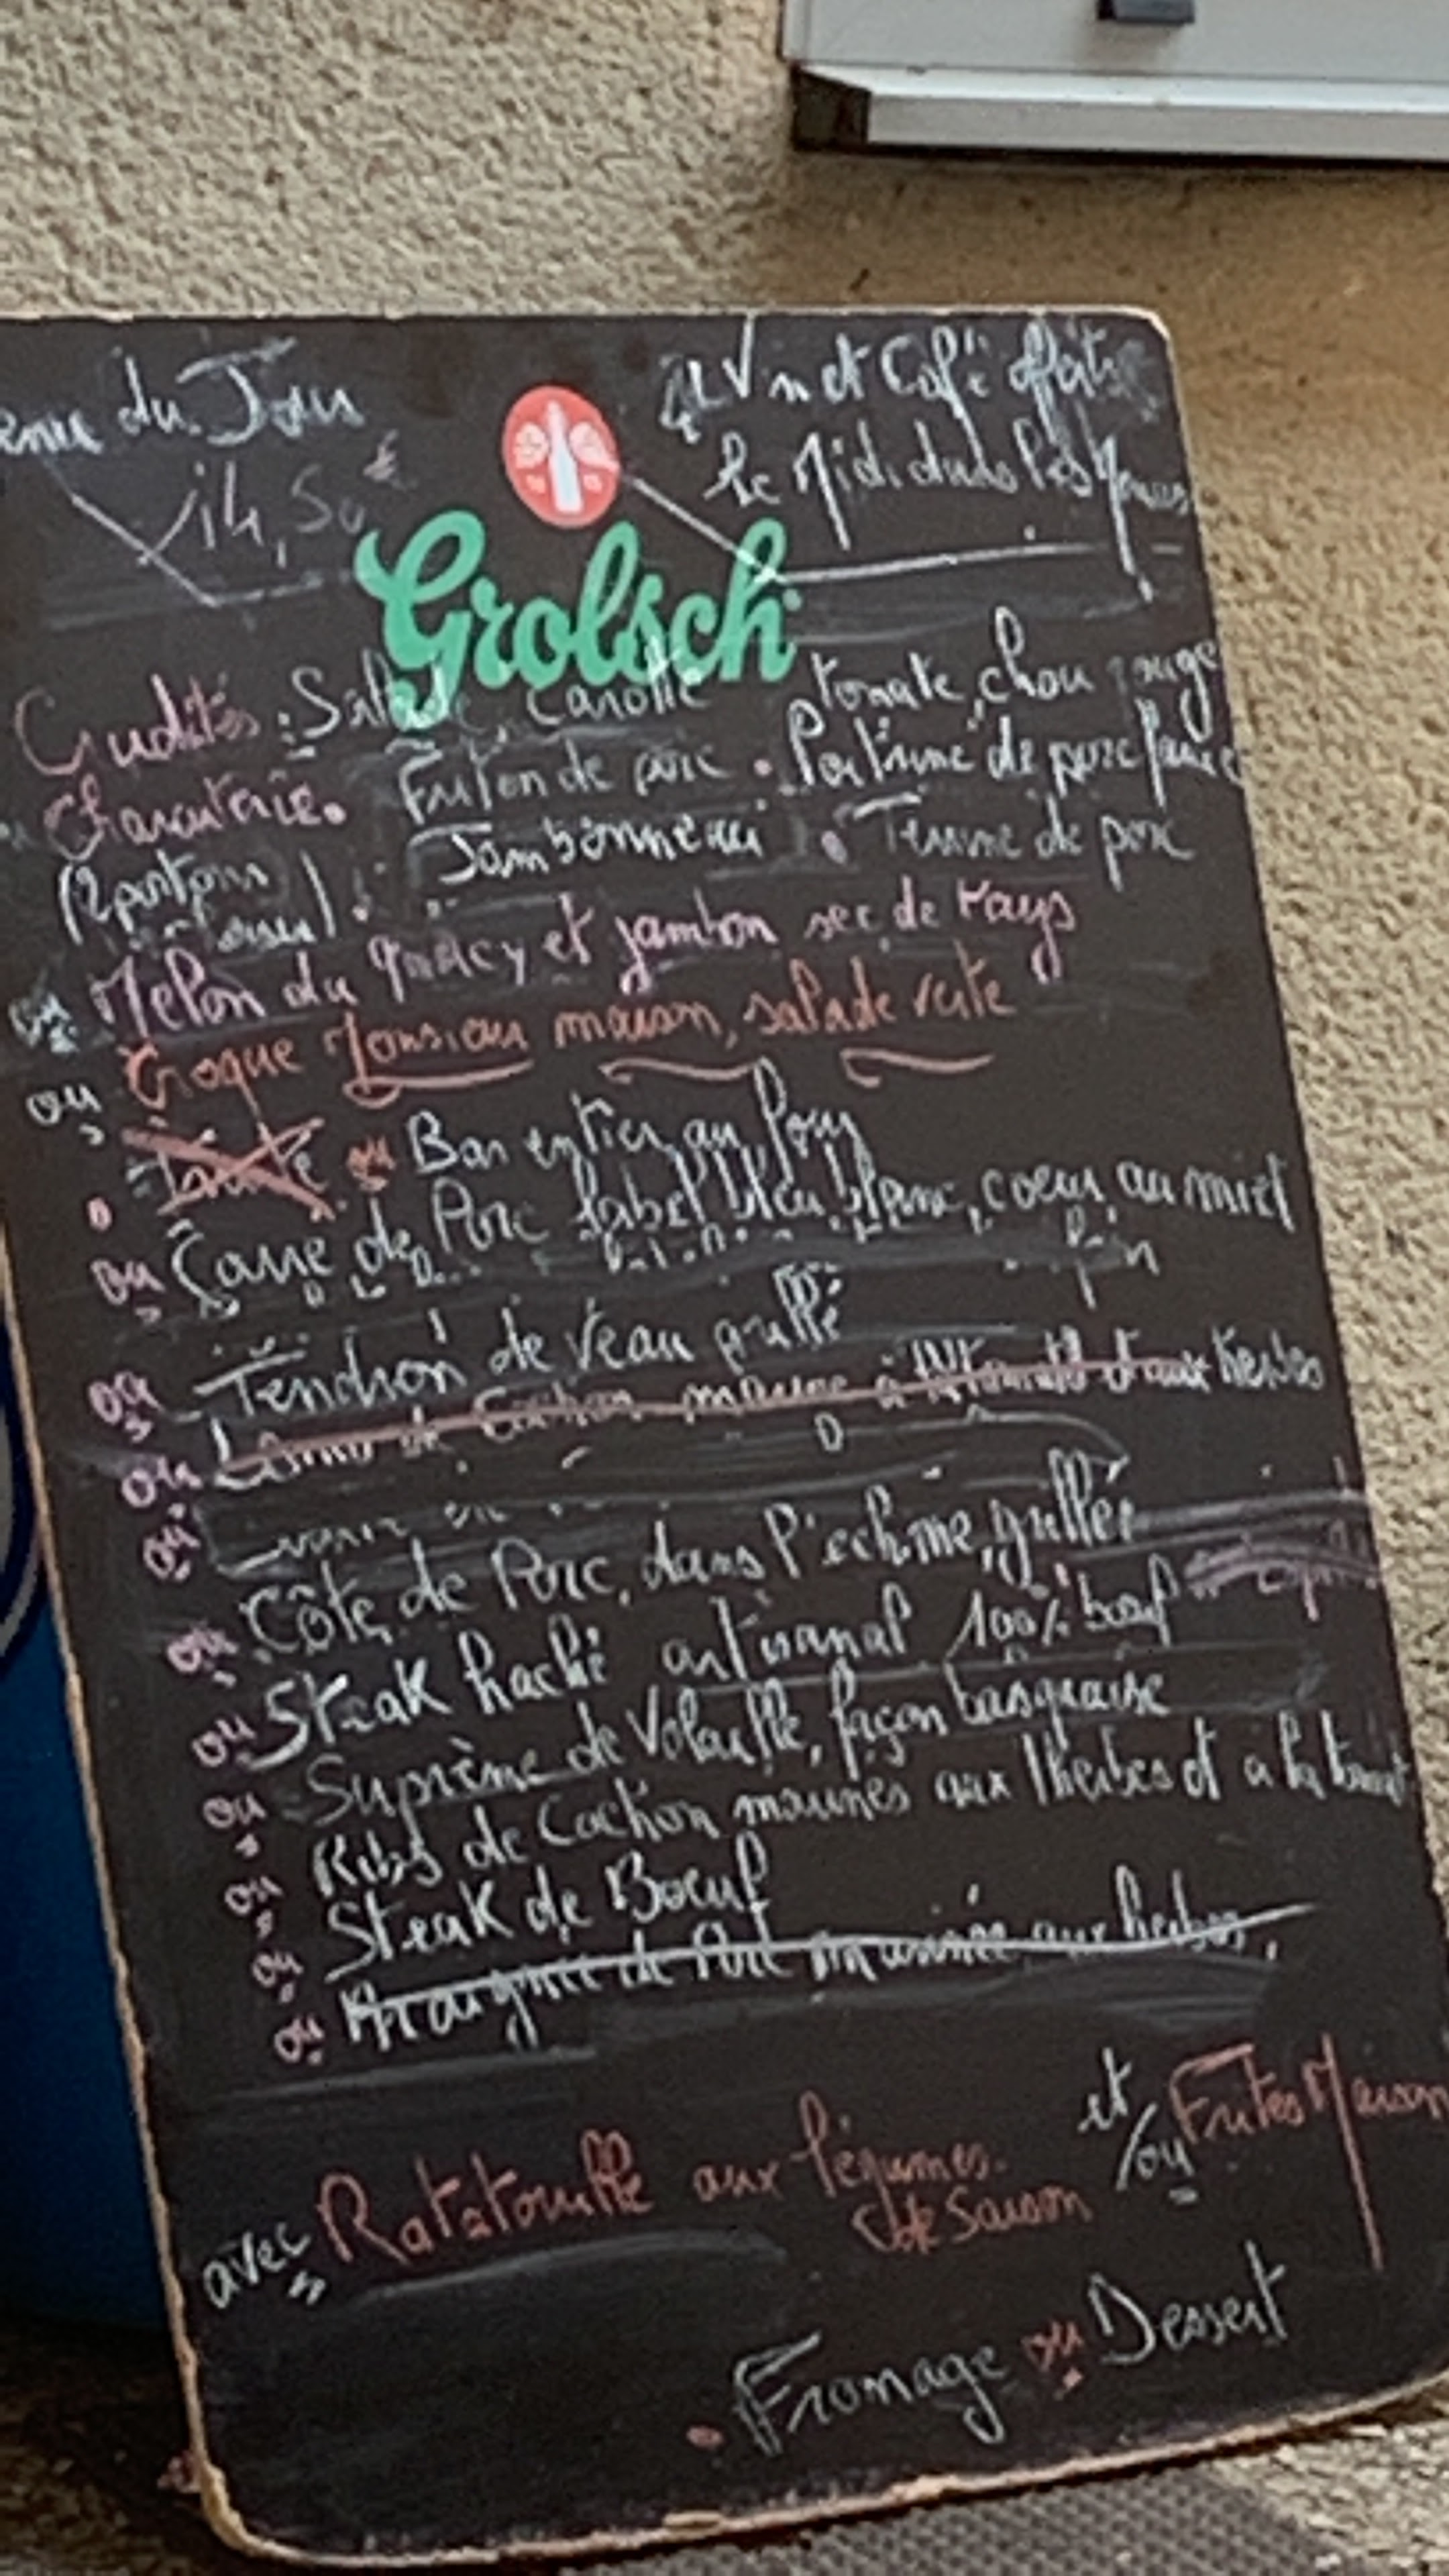 du Jour
14,50€
et Café offerts
le Midi dans les
Grolsch
Crudités : Salade, Carotte tomate, chou rouge
Charcuterie. Friton de porc . Poitrine de porc
Jambonneau . Terrine de porc
ou Melon du quercy et jambon sec de Pays
ou Croque Monsieur maison, salade verte
ou Bar entier au four
ou Carré de Porc label bleu blanc, coeur au miel
ou Tendron de Veau grillé
ou de Cochon à aux herbes
ou
ou Côte de Porc, dans l'échine, grillée
ou Steak haché artisanal 100% bœuf
ou Suprême de Volaille, façon basquaise
ou Ribs de Cochon marinés aux herbes et à la
ou Steak de Boeuf
ou Araignée de Porc marinée aux herbes,
avec Ratatouille aux légumes et/ou Frites Maison
de Saison
. Fromage ou Dessert